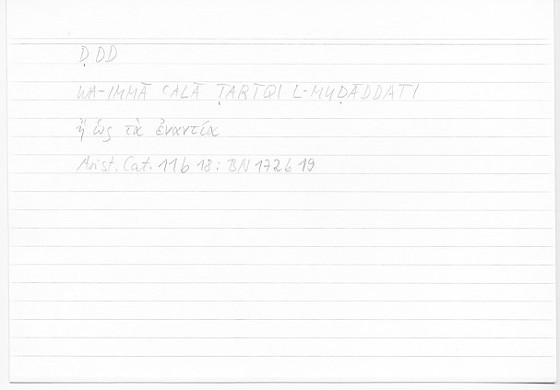 ḌDD
WA-IMMĀ ʿALĀ ṬARĪQI L-MUḌĀDDATI
ἢ ὡς τὰ ἐναντία
Arist. Cat. 11b 18 : BN 172b 19